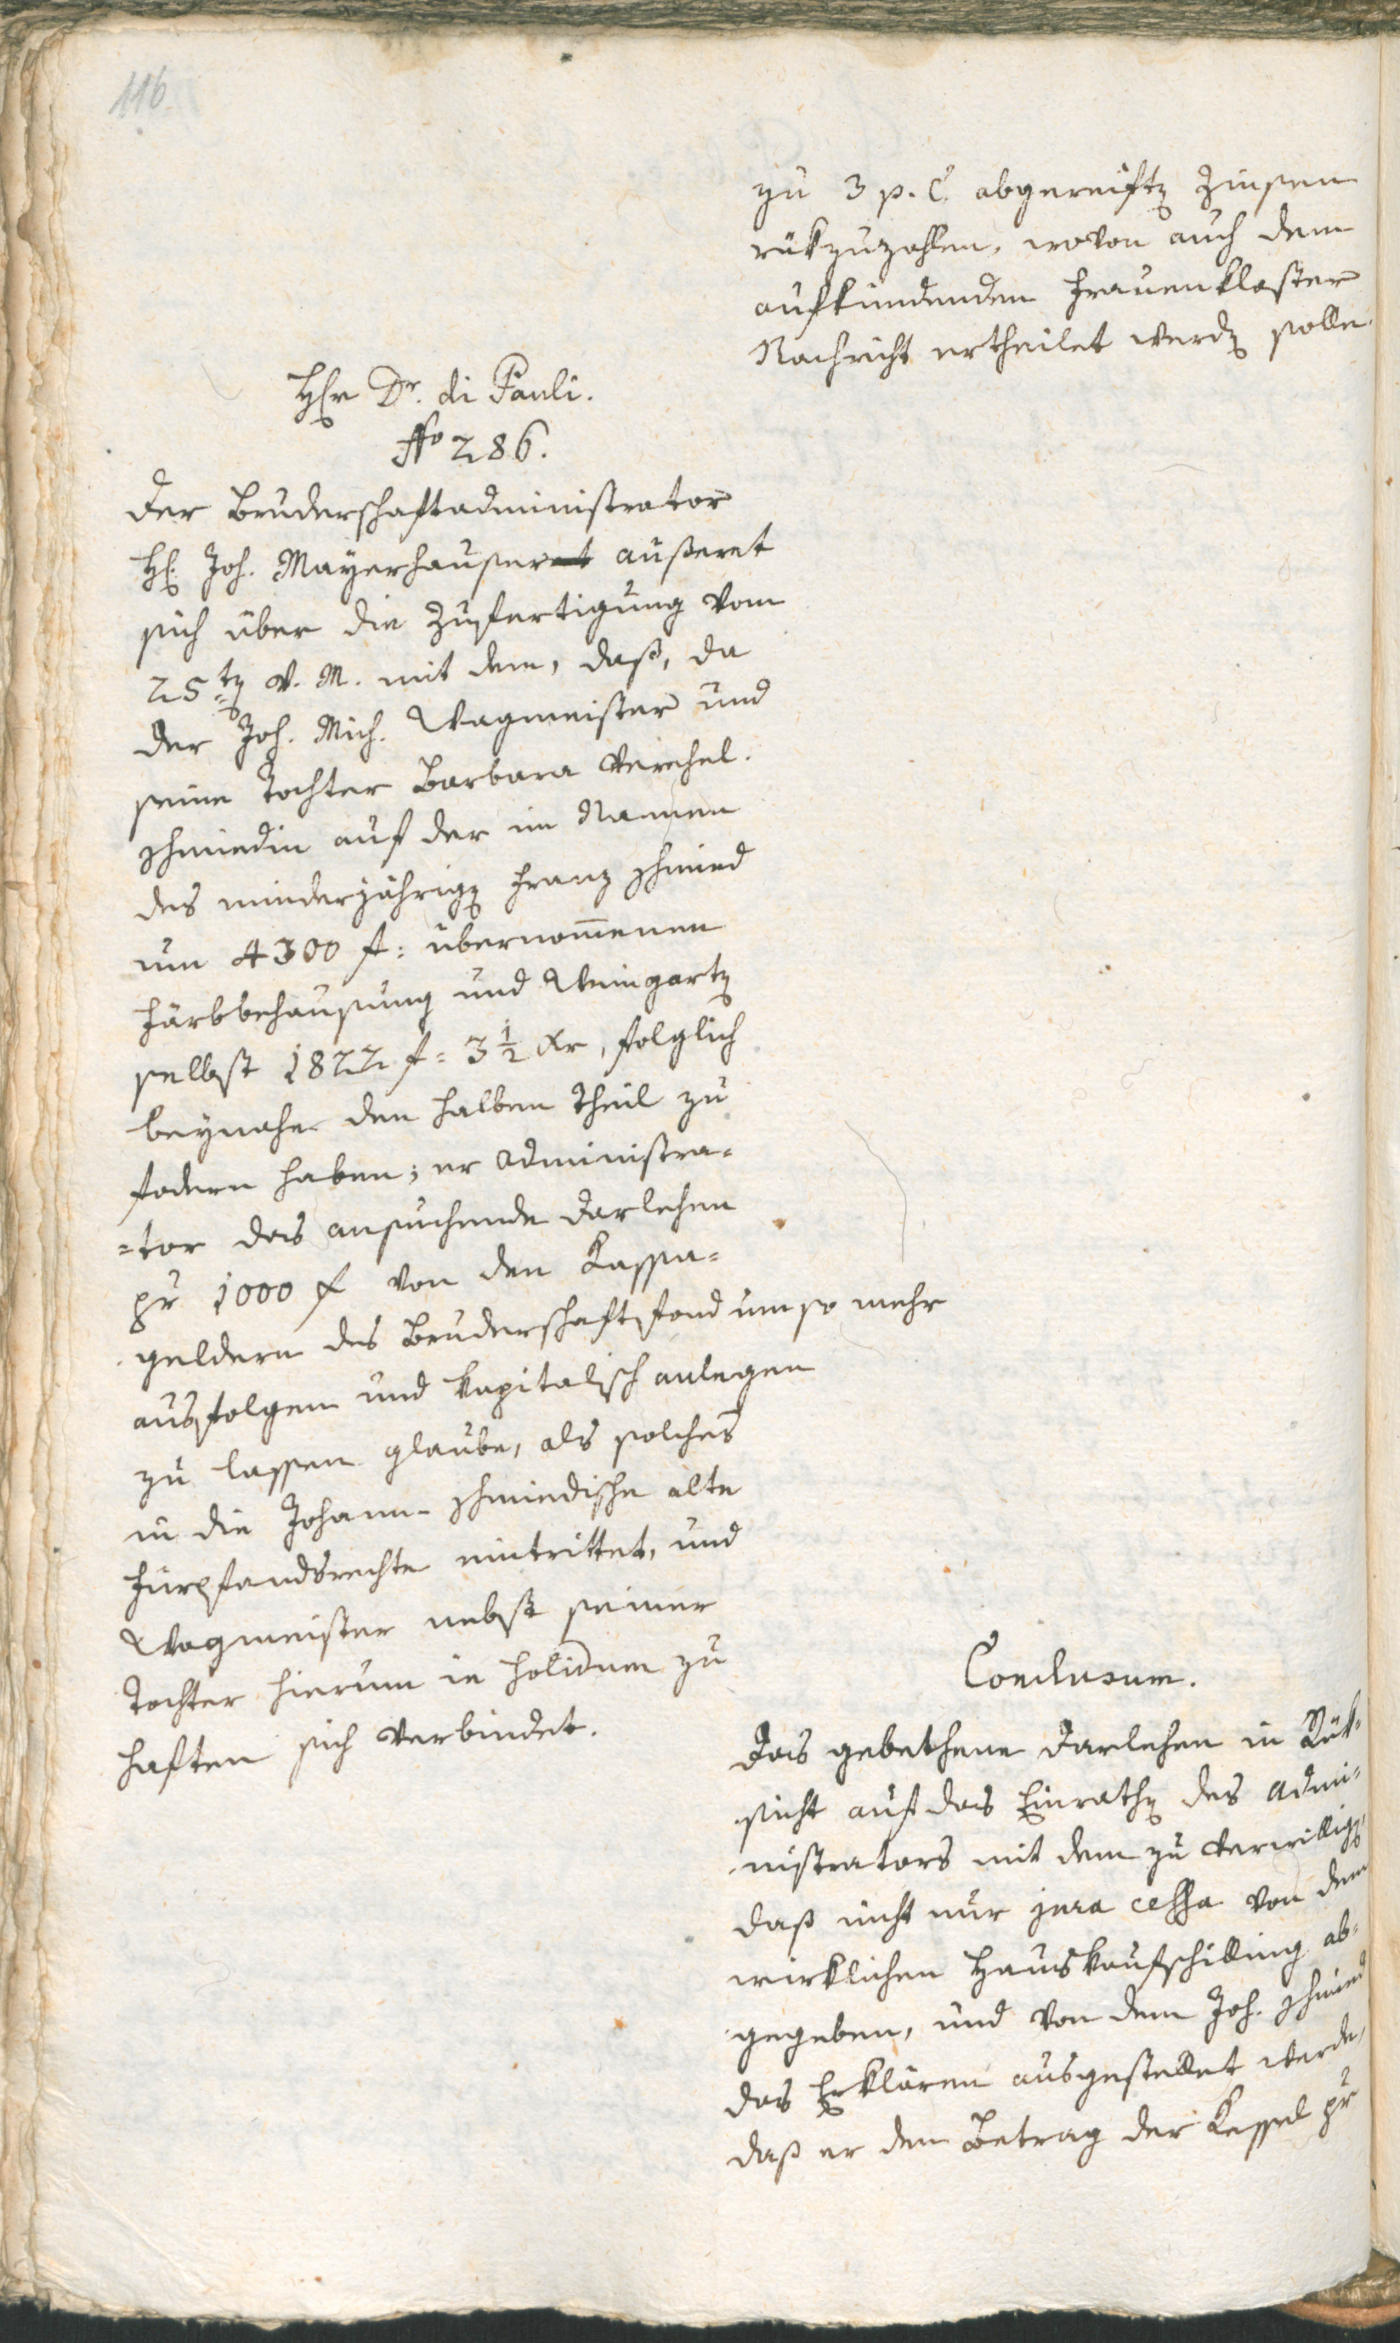 116.
zu 3 p. C. abgereiften Zinsen
rükzuzahlen, wovon auch dem
aufkündenden Frauenkloster
Nachricht ertheilet werden solle.
Herr Dr. di Pauli.
No 286.
Der Bruderschaftadministrator
H. Joh. Mayerhauser außeret
sich über die Zufertigung vom
25ten v. M. mit dem, daß, da
der Joh. Mich. Wagmeister und
seine Tochter Barbara verehel.
Schmiedin auf der im Namen
des minderjährigen Franz Schmied
um 4300 f: übernommenen
Färbbehausung und Weingarten
selbst 1822 f: 3 1/2 Xr, folglich
beynahe den halben Theil zu
fodern haben; er Administra-
-tor das ansuchende Darlehen
pr 1000 f von den Kassa-
geldern des Bruderschaftsfond um so mehr
ausfolgen und kapitalisch anlegen
zu lassen glaube, als solches
in die Johann-Schmiedische alte
Fürpfandsrechte eintrittet, und
Wagmeister nebst seiner
Tochter hierum in solidum zu
haften sich verbindet.
Conclusum.
Das gebethene Darlehen in Rük-
sicht auf das Einrathen des Admi-
nistrators mit dem zu verwilligen,
daß nicht nur jura cessa von dem
wirklichen Hauskaufschilling ab-
gegeben, und von dem Joh. Schmied
das Erklären ausgestellet werde,
daß er den Betrag der Kessel pr